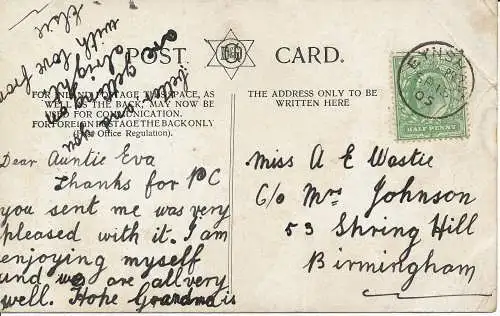 POST CARD.
FOR INLAND POSTAGE THIS SPACE, AS
WELL AS THE BACK, MAY NOW BE
USED FOR COMMUNICATION.
FOR FOREIGN POSTAGE THE BACK ONLY
(Post Office Regulation).
THE ADDRESS ONLY TO BE
WRITTEN HERE
HALF PENNY
EYNSHAM
05
Dear Auntie Eva
Thanks for PC
you sent me was very
pleased with it. I am
enjoying myself
and we are all very
well. Hope Grandma is
better and you
are getting on
alright
with love from
Elsie
Miss A E Wastie
C/o Mrs Johnson
53 Spring Hill
Birmingham